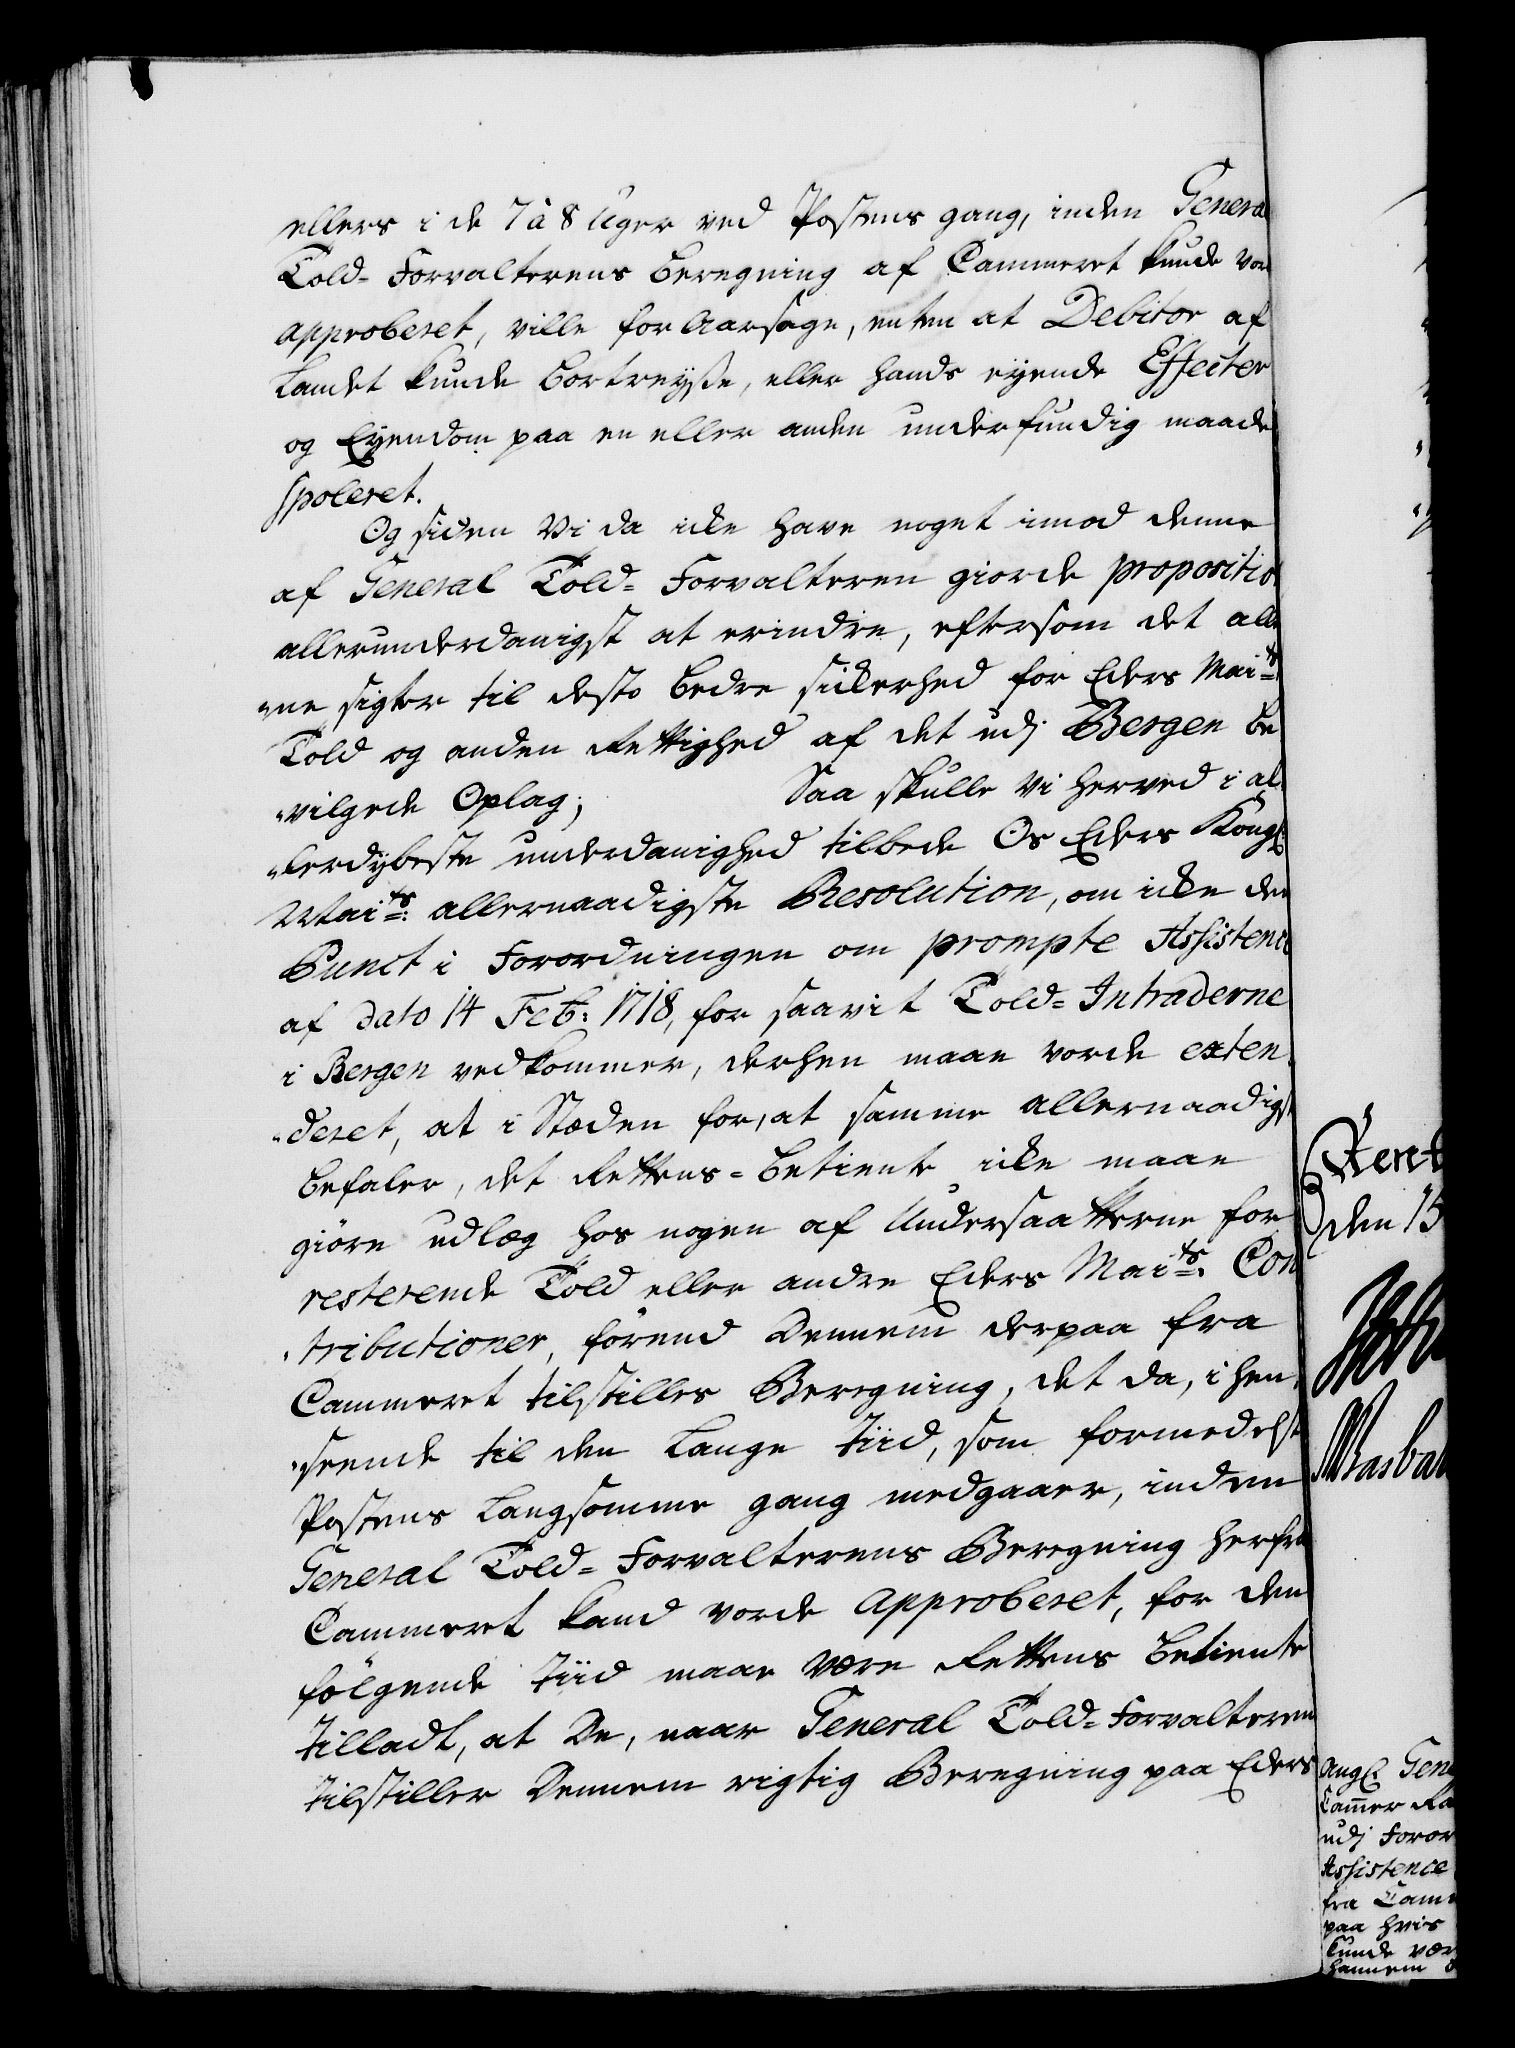 ellers i de 7 à 8 Uger ved Postens gang, inden Genera
Told= Forvalterens beregning af Cammeret kunde vor
approberet, ville foraarsage, enten at Debitor af
Landet kunde bortreyse, eller hands eyende Effecter
og Eyendom paa en eller anden underfundig maade
spoleret.
Og siden Vi da icke have noget imod denne
af General Told= Forvalteren giorde propositio
allerunderdanigst at erindre, eftersom det alle
"ne sigter til desto bedre sickerhed for Eders Maits
Told og anden Rettighed af det udj Bergen be
"vilgede Oplag; Saa skulle Vi herved i al
"lerdybeste underdanighed tilbede Os Eders Kongl:
Maits: allernaadigste Resolution, om icke den
Punct i Forordningen om prompte Assistence
af dato 14 Feb: 1718, for saavit Told= Intraderne
i Bergen vedkommer, derhen maae vorde exten
"deret, at i Stæden for, at samme allernaadigst
befaler, det Rettens=betiente icke maae
giøre udlæg hos nogen af Undersaatterne for
resterende Told eller andre Eders Maits: Con
"tributioner, førend Dennem derpaa fra
Cammeret tilstilles Beregning, det da, i hen
"seende til den Lange tiid, som formedelst
Postens Langsomme gang medgaaer, inden
General Told= Forvalterens Beregning herfra
Cammeret kand vorde approberet, for den
følgende tiid maae være Rettens betiente
tilladt, at De, naar General Told= Forvalteren
tilstiller Dennem rigtig Beregning paa Eders
den 15
Angl: Gene
Cammer Ra
udj Foror
Assistence
fra Cam
paa hvis
kunde vær
hannem